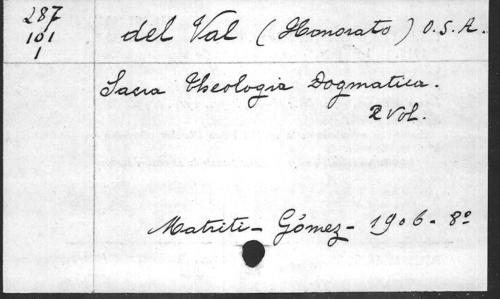 287
101
1
del Val (Honorato) O.S.A.
Sacra theologia Dogmatica.
2 Vol.
Matriti - Gómez - 1906 - 8º